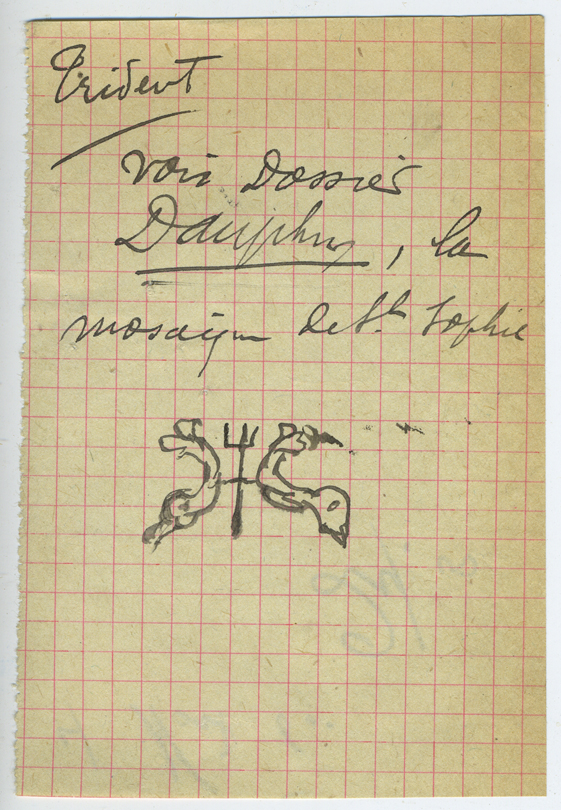 Trident
voir Dossier
Dauphin, la
mosaïque de Ste Sophie